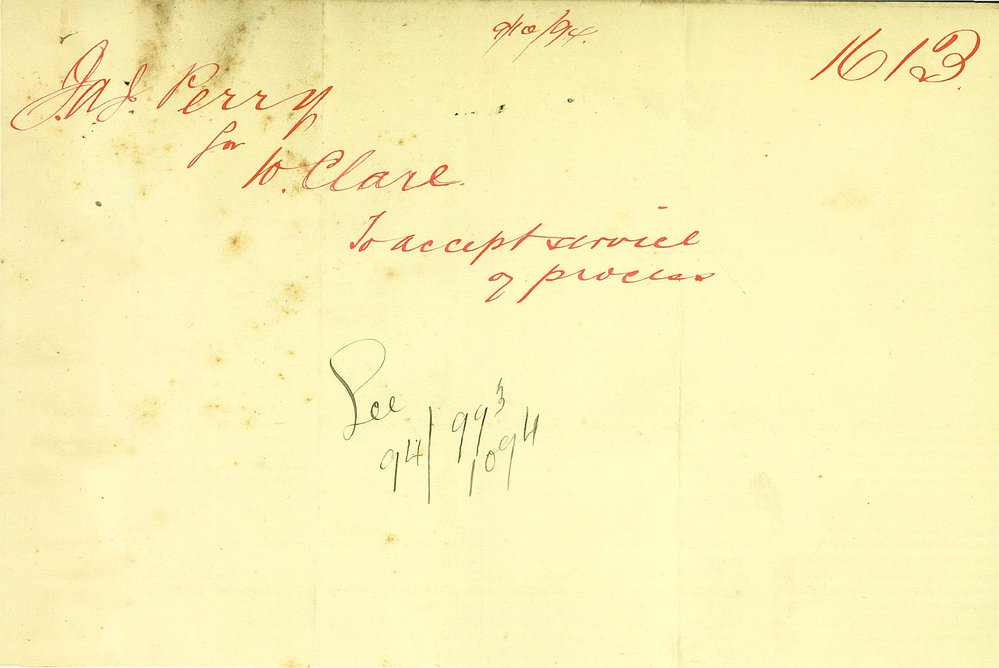 9/10/94.
1613.
Jas. Perry
for
W. Clare.
To accept service
of process
See
94/993
1094